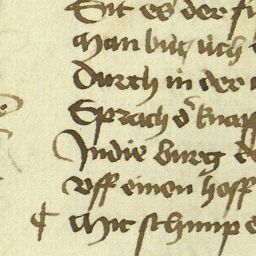 Sit es der
Man but uch
Durch in der
Sprach d' knapp
In die burg
Vff einen hoff
¶ Mit schimp